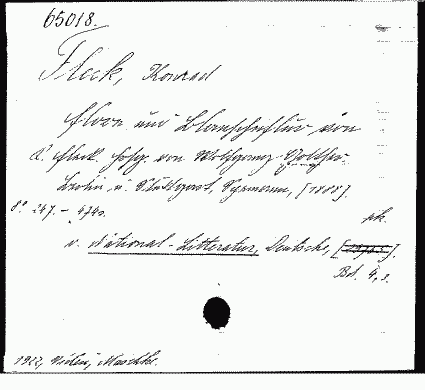 65018.
Fleck, Konrad
Flore und Blanscheflur von
K. Fleck. Hrsg. von Wolfgang Golther
Berlin u. Stuttgart, Spemann, [1888].
8° 247.- 474 S.
v. National-Litteratur, Deutsche,
Bd. 4, 3.
1922,